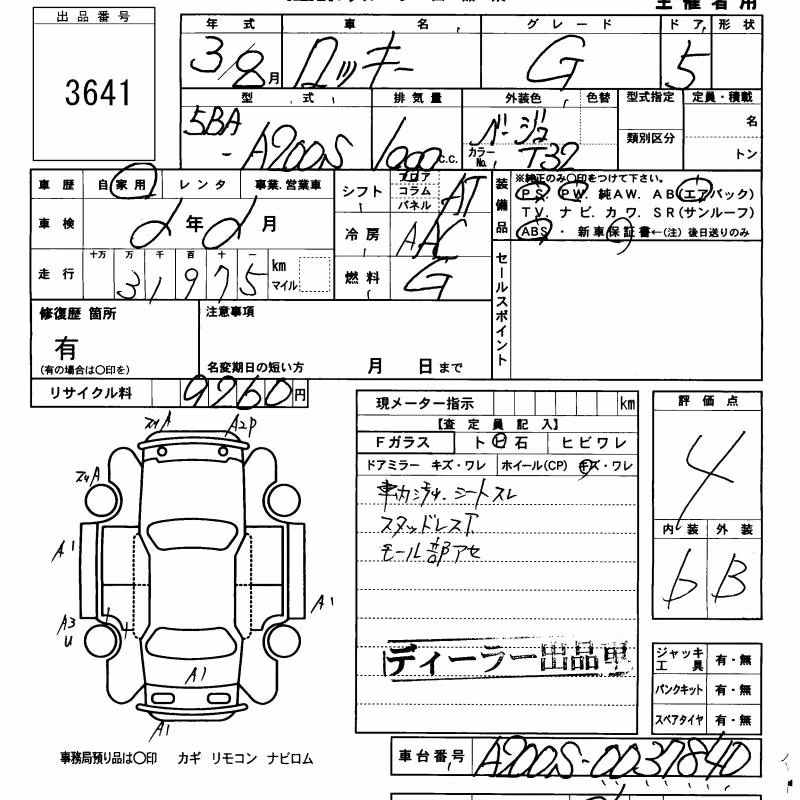 主催者用
出品番号
3641
年式 車名 グレード ドア 形状
3/8月 ロッキー G 5
型式 排気量 外装色 色替 型式指定 定員・積載
5BA-A200S 1000c.c. ベージュ 類別区分 名
カラーNo. T32 トン
車歴 自家用 レンタ 事業.営業車
車検 年 月
走行 十万 万 千 百 十 一
31975 km マイル
シフト フロア コラム パネル AT
冷房 AAC
燃料 G
装備品 ※純正のみ〇印をつけて下さい。
PS. PW. 純AW. AB(エアバック)
TV. ナビ. カワ. SR(サンルーフ)
ABS・新車保証書←(注)後日送りのみ
セールスポイント
修復歴 箇所
有
(有の場合は〇印を)
注意事項
名変期日の短い方 月 日まで
リサイクル料 9260円
現メーター指示 km
【査定員記入】
Fガラス トビ石 ヒビワレ
ドアミラー キズ・ワレ ホイール(CP) キズ・ワレ
車内汚れ.シートスレ
スタッドレスT
モール部アセ
ディーラー出品車
評価点
4
内装 外装
6 B
A2P
A1
A1
A3
U
A1
A1
ジャッキ工具 有・無
パンクキット 有・無
スペアタイヤ 有・無
事務局預り品は〇印 カギ リモコン ナビロム
車台番号 A200S-0037840